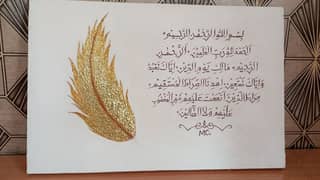 بسم الله الرحمن الرحيم
الحمد لله رب العالمين. الرحمن
الرحيم. مالك يوم الدين. اياك نعبد
واياك نستعين. اهدنا الصراط المستقيم.
صراط الذين انعمت عليهم غير المغضوب
عليهم ولا الضالين
MC.